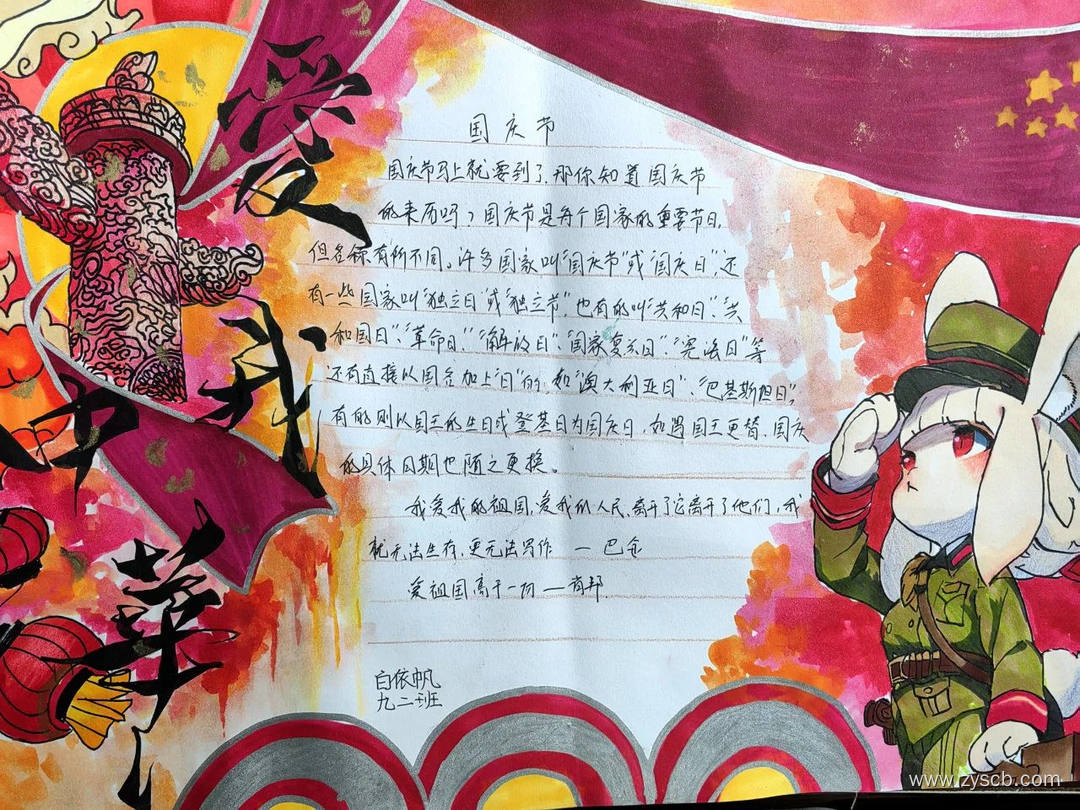 爱我中华
国庆节
国庆节马上就要到了,那你知道国庆节
的来历吗?国庆节是每个国家的重要节日,
但名称有所不同。许多国家叫“国庆节”或“国庆日”,还
有一些国家叫“独立日”或“独立节”,也有的叫“共和日”、“共
和国日”、“革命日”、“解放日”、“国家复兴日”、“宪法日”等
还有直接以国名加上“日”的,如“澳大利亚日”、“巴基斯坦日”,
有的则以国王的生日或登基日为国庆日,如遇国王更替,国庆
的具体日期也随之更换。
我爱我的祖国,爱我的人民,离开了它离开了他们,我
就无法生存,更无法写作 — 巴金
爱祖国高于一切 — 肖邦
白依帆
九二十班
www.zyscb.com